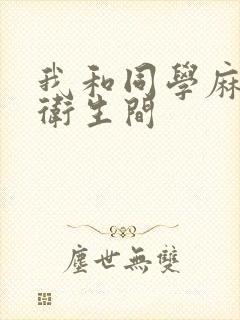 我和同學麻
衛生間
塵世無雙